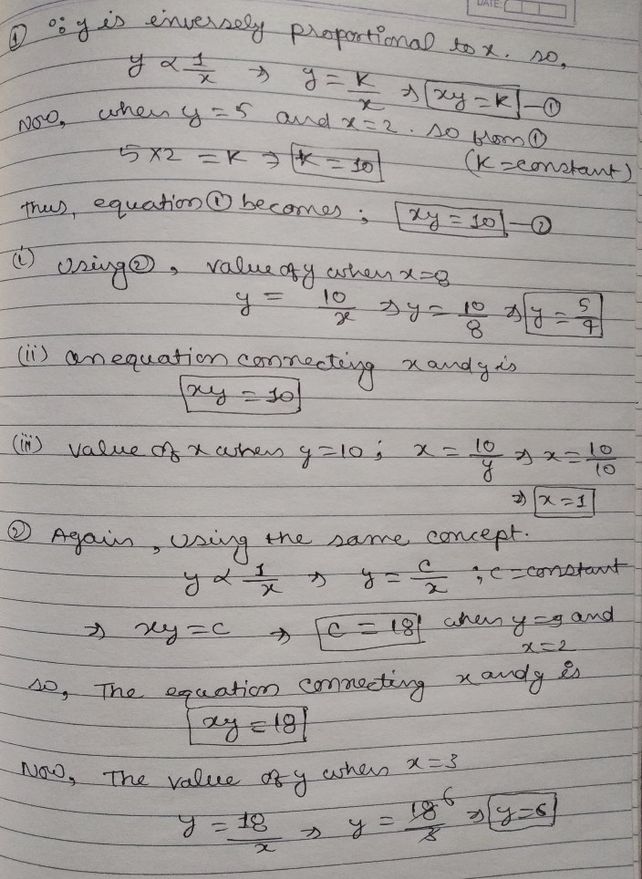 DATE:
① ∵ y is inversely proportional to x. so,
y ∝ 1/x ⇒ y = K/x ⇒ xy = K —①
Now, when y = 5 and x = 2. so from ①
5 × 2 = K ⇒ K = 10 (K = constant)
Thus, equation ① becomes; xy = 10 —②
(i) Using ②, value of y when x = 8
y = 10/x ⇒ y = 10/8 ⇒ y = 5/4
(ii) an equation connecting x and y is
xy = 10
(iii) value of x when y = 10; x = 10/y ⇒ x = 10/10
⇒ x = 1
② Again, using the same concept.
y ∝ 1/x ⇒ y = c/x ; c = constant
⇒ xy = c ⇒ c = 18 when y = 9 and
x = 2
so, The equation connecting x and y is
xy = 18
Now, The value of y when x = 3
y = 18/x ⇒ y = 18/3 6 ⇒ y = 6